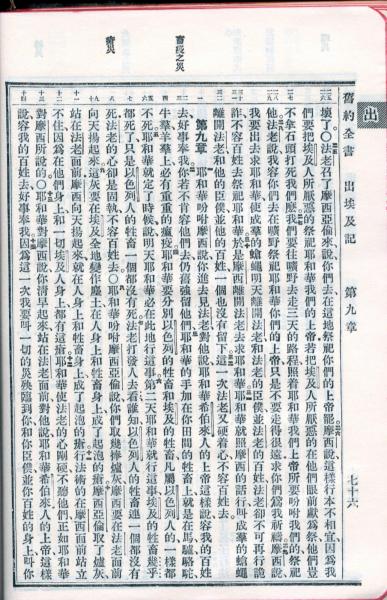 出
舊約全書 出埃及記 第九章 七十六
壞了○法老召了摩西亞倫來說你們去在這地祭祀你們的上帝罷摩西說這樣行本不相宜因爲我
們要把埃及人所厭惡的祭祀耶和華我們的上帝若把埃及人所厭惡的在他們眼前獻爲祭他們豈
不拿石頭打死我們麼我們要往曠野去走三天的路程照着耶和華我們上帝所要吩咐我們的祭祀
他法老說我容你們去在曠野祭祀耶和華你們的上帝只是不要走得很遠求你們爲我祈禱摩西說
我要出去求耶和華使成羣的蒼蠅明天離開法老和法老的臣僕並法老的百姓法老卻不可再行詭
詐不容百姓去祭祀耶和華於是摩西離開法老去求耶和華耶和華就照摩西的話行叫成羣的蒼蠅
離開法老和他的臣僕並他的百姓一個也沒有留下這一次法老又硬着心不容百姓去
第九章 耶和華吩咐摩西說你進去見法老對他說耶和華希伯來人的上帝這樣說容我的百姓
去好事奉我你若不肯容他們去仍舊強留他們耶和華的手加在你田間的牲畜上就是在馬驢駱駝
牛羣羊羣上必有重重的瘟疫耶和華要分別以色列的牲畜和埃及的牲畜凡屬以色列人的一樣都
不死耶和華就定了時候說明天耶和華必在此地行這事第二天耶和華就行這事埃及的牲畜幾乎
都死了只是以色列人的牲畜一個都沒有死法老打發人去看誰知以色列人的牲畜連一個都沒有
死法老的心卻是固執不容百姓去○耶和華吩咐摩西亞倫說你們取幾捧爐灰摩西要在法老面前
向天揚起來這灰要在埃及全地變作塵土在人身上和牲畜身上成了起泡的瘡摩西亞倫取了爐灰
站在法老面前摩西向天揚起來就在人身上和牲畜身上成了起泡的瘡行法術的在摩西面前站立
不住因爲在他們身上和一切埃及人身上都有這瘡耶和華使法老的心剛硬不聽他們正如耶和華
對摩西所說的○耶和華對摩西說你清早起來站在法老面前對他說耶和華希伯來人的上帝這樣
說容我的百姓去好事奉我因爲這一次我要叫一切的災殃臨到你和你臣僕並你百姓的身上叫你
畜疫之災
瘡災